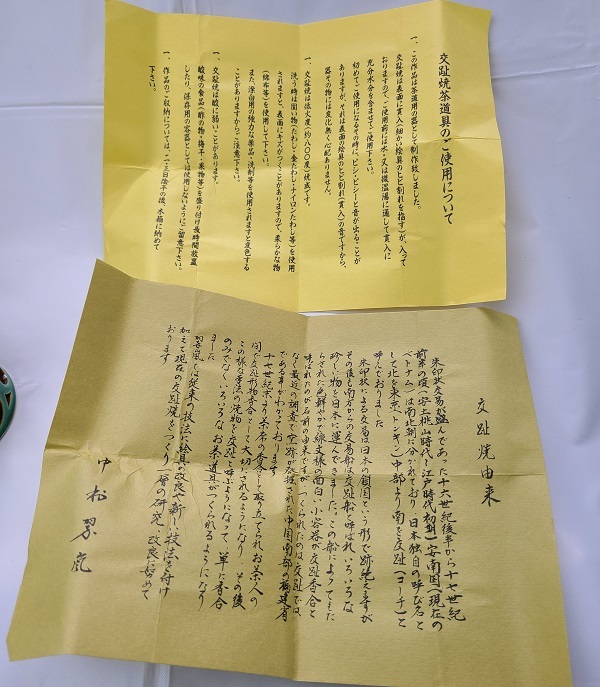 交趾焼茶道具のご使用について
一、この作品は茶道用の器として制作致しました。
交趾焼は表面に貫入(細かい絵具のヒビ割れを指す)が、入って
おりますので、ご使用前には水・又は微温湯に通して貫入に
充分水分を含ませてご使用下さい。
初めてご使用になるその時に、ピシ・ピシーと音が出ることが
ありますが、それは表面の絵具のヒビ割れ(貫入)の音ですから、
器その物には変化無く心配ありません。
一、交趾焼は低火度(約八〇〇度)焼成です。
洗う時は固い物(たわし・金たわし・ナイロンたわし等)を使用
されますと、表面にキズがつくことがありますので、柔らかな物
(綿布等)を使用して下さい。
また、漂白用の強力な薬品・洗剤等を使用されますと変色する
ことがありますからご注意下さい。
一、交趾焼は酸に弱いことがあります。
酸味の食品(酢の物・梅干・果物等)を盛り付け長時間放置
したり、保存用の容器としては使用しないようにご留意下さい。
一、作品のご収納については、二・三日陰干の後、木箱に納めて
下さい。
交趾焼由来
朱印状交易が盛んであった十六世紀後半から十七世紀
前半の頃(安土桃山時代~江戸時代初期)安南国(現在の
ベトナム)は南北朝に分かれており、日本独自の呼び名と
して北を東京(トンキン)中部より南を交趾(コーチ)と
呼んでおりました
朱印状による交易は日本の鎖国という形で跡絶えますが
その後も南方からの交易船は交趾船と呼ばれ、いろいろな
珍しい物を日本に運んできました、この船によってもた
らされた色鮮やかで線文様の面白い小容器が交趾香合と
呼ばれたのが名前の由来ですが、つくられたのは交趾では
なく最近の調査で窯跡が発掘された中国南部の福建省
である事がわかっております
十七世紀末より茶席の香合として取り立てられお茶人の
間で交趾形物香合として大切にされるようになり その後
この様な手法の焼物を交趾と呼ぶようになって、単に香合
のみでなく、いろいろなお茶道具がつくられるようになり
ました
翠嵐では従来の技法に絵具の改良や新しい技法を付け
加えて現在の交趾焼をつくり一層の研究、改良に努めて
おります
中村翠嵐